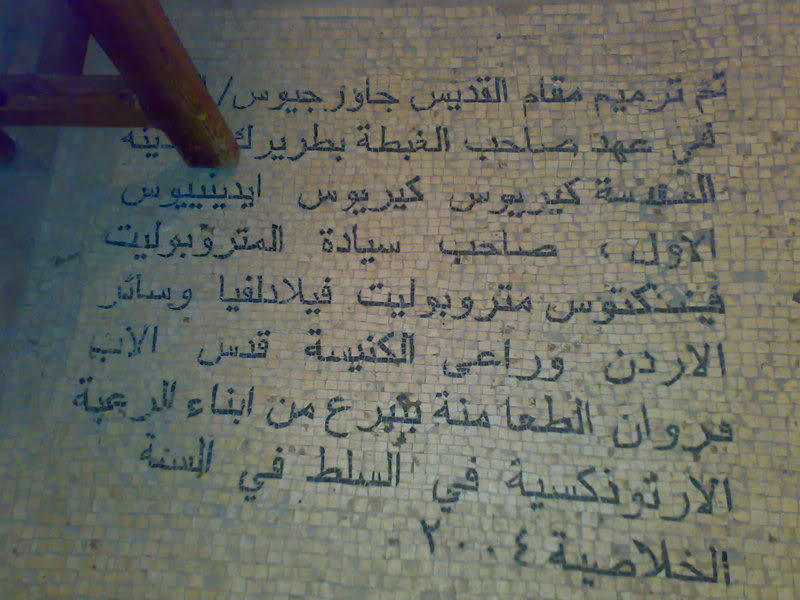 تم ترميم مقام القديس جاورجيوس/
في عهد صاحب الغبطة بطريرك
المقدسة كيريوس كيريوس ايدينييوس
الاول ، صاحب سيادة المتروبوليت
فينذكتوس متروبوليت فيلادلفيا وسائر
الاردن وراعي الكنيسة قدس الاب
مروان الطعامنة بتبرع من ابناء الرعية
الارتوذكسية في السلط في السنة
الخلاصية ٢٠٠٤